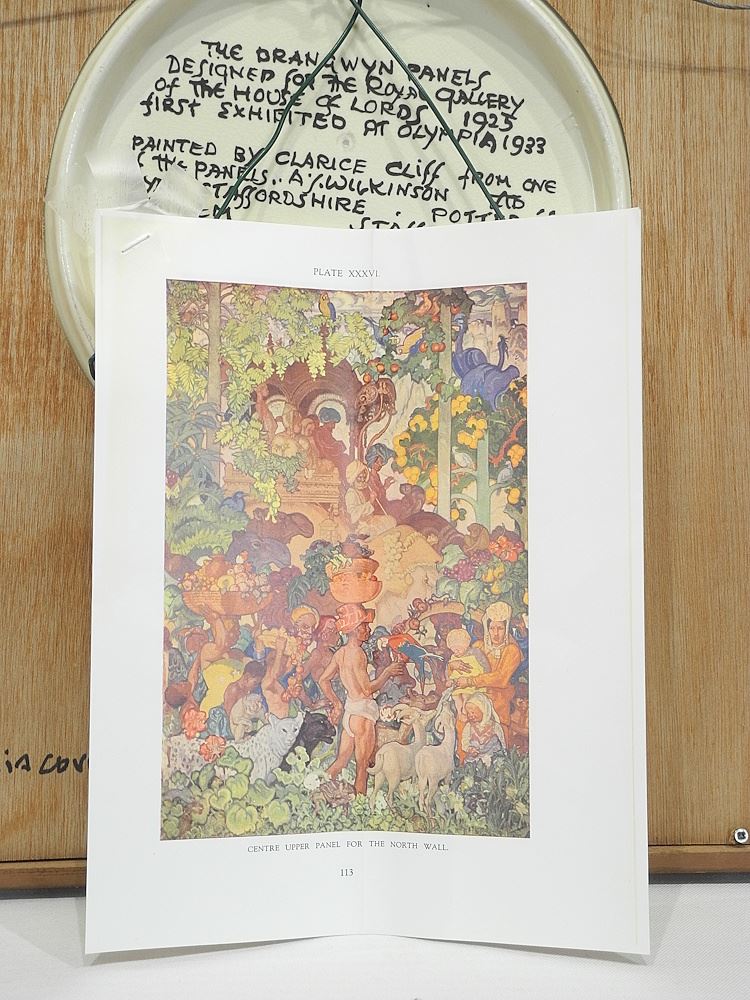 THE BRANGWYN PANELS
DESIGNED for THE ROYAL GALLERY
of THE HOUSE of LORDS 1925
first EXHIBITED AT OLYMPIA 1933
PAINTED BY CLARICE Cliff from ONE
of the PANELS.. A.J. WILKINSON LTD
STAFFORDSHIRE . POTTER
PLATE XXXVI.
CENTRE UPPER PANEL FOR THE NORTH WALL.
113